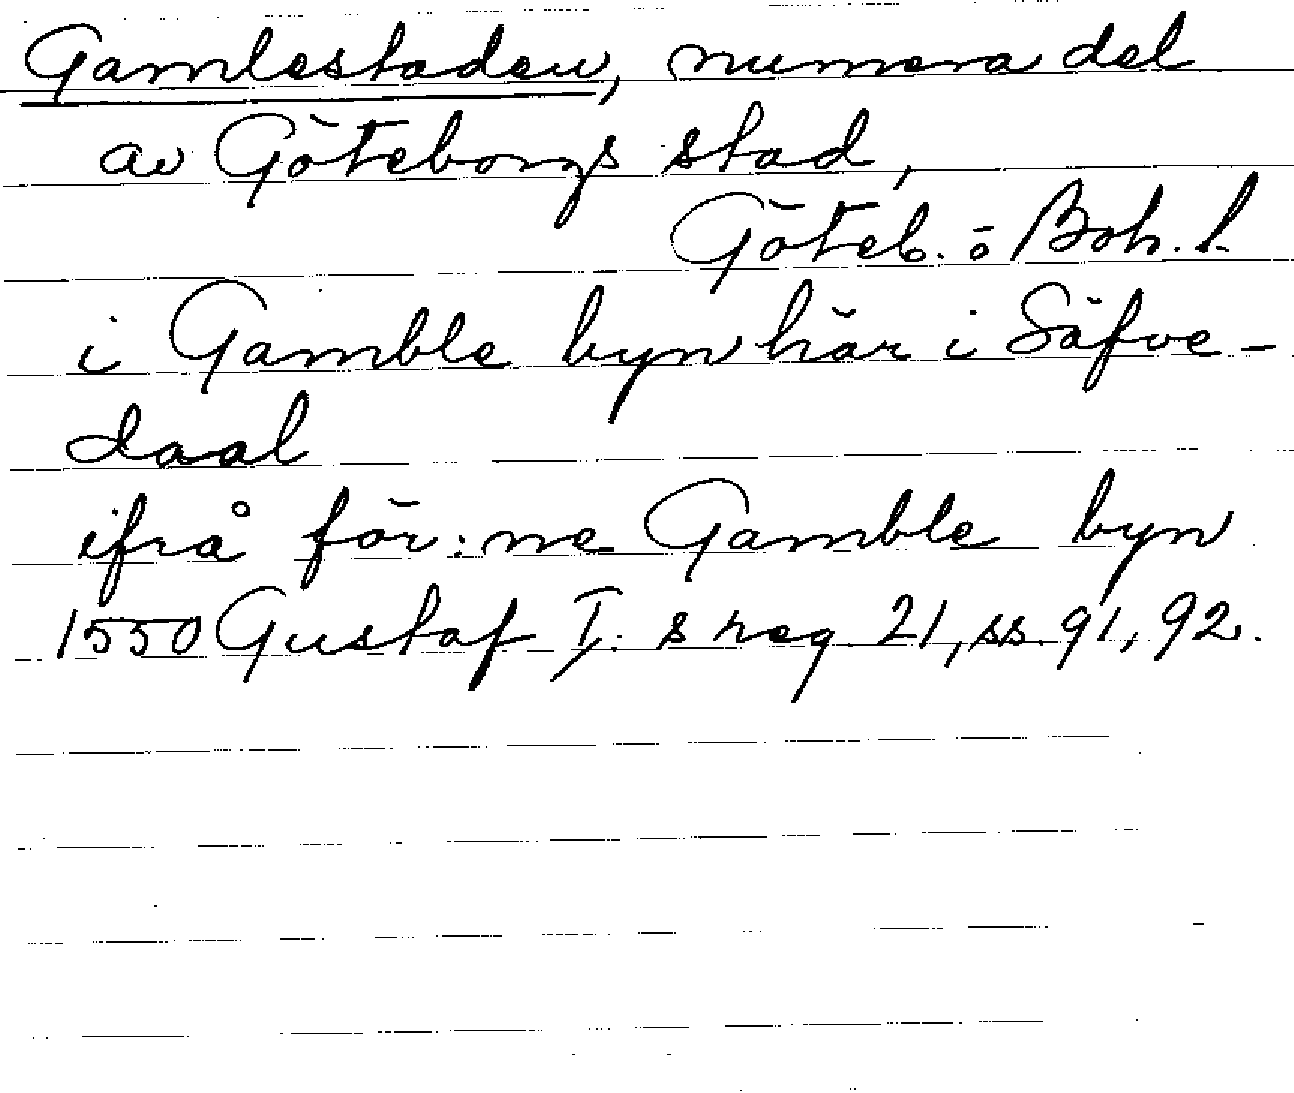 Gamlestaden, numera del
av Göteborgs stad,
Göteb. o Boh. l.
i Gamble byn här i Säfve-
daal
ifrå för:ne Gamble byn
1550 Gustaf I:s reg 21, ss. 91, 92.